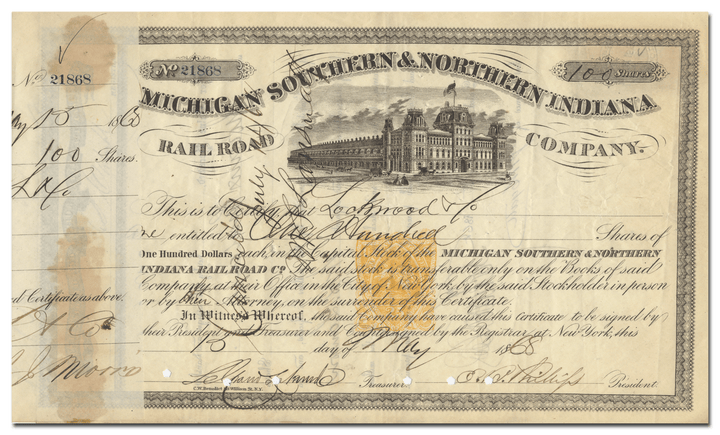 No. 21868
No 21868
100 Shares
MICHIGAN SOUTHERN & NORTHERN INDIANA
RAIL ROAD COMPANY.
May 25 1868
100 Shares.
L & Co
This is to Certify that Lockwood & Co
entitled to One Hundred Shares of
One Hundred Dollars each, on the Capital Stock of the MICHIGAN SOUTHERN & NORTHERN
INDIANA RAIL ROAD Co. The said stock is transferable only on the Books of said
Company, at their Office in the City of New York, by the said Stockholder in person
or by their Attorney, on the surrender of this Certificate.
Certificate as above.
In Witness Whereof, the said Company have caused this certificate to be signed by
their President and Treasurer and Countersigned by the Registrar, at New York, this
day of May 1868
Treasurer. Phillips President.
New York